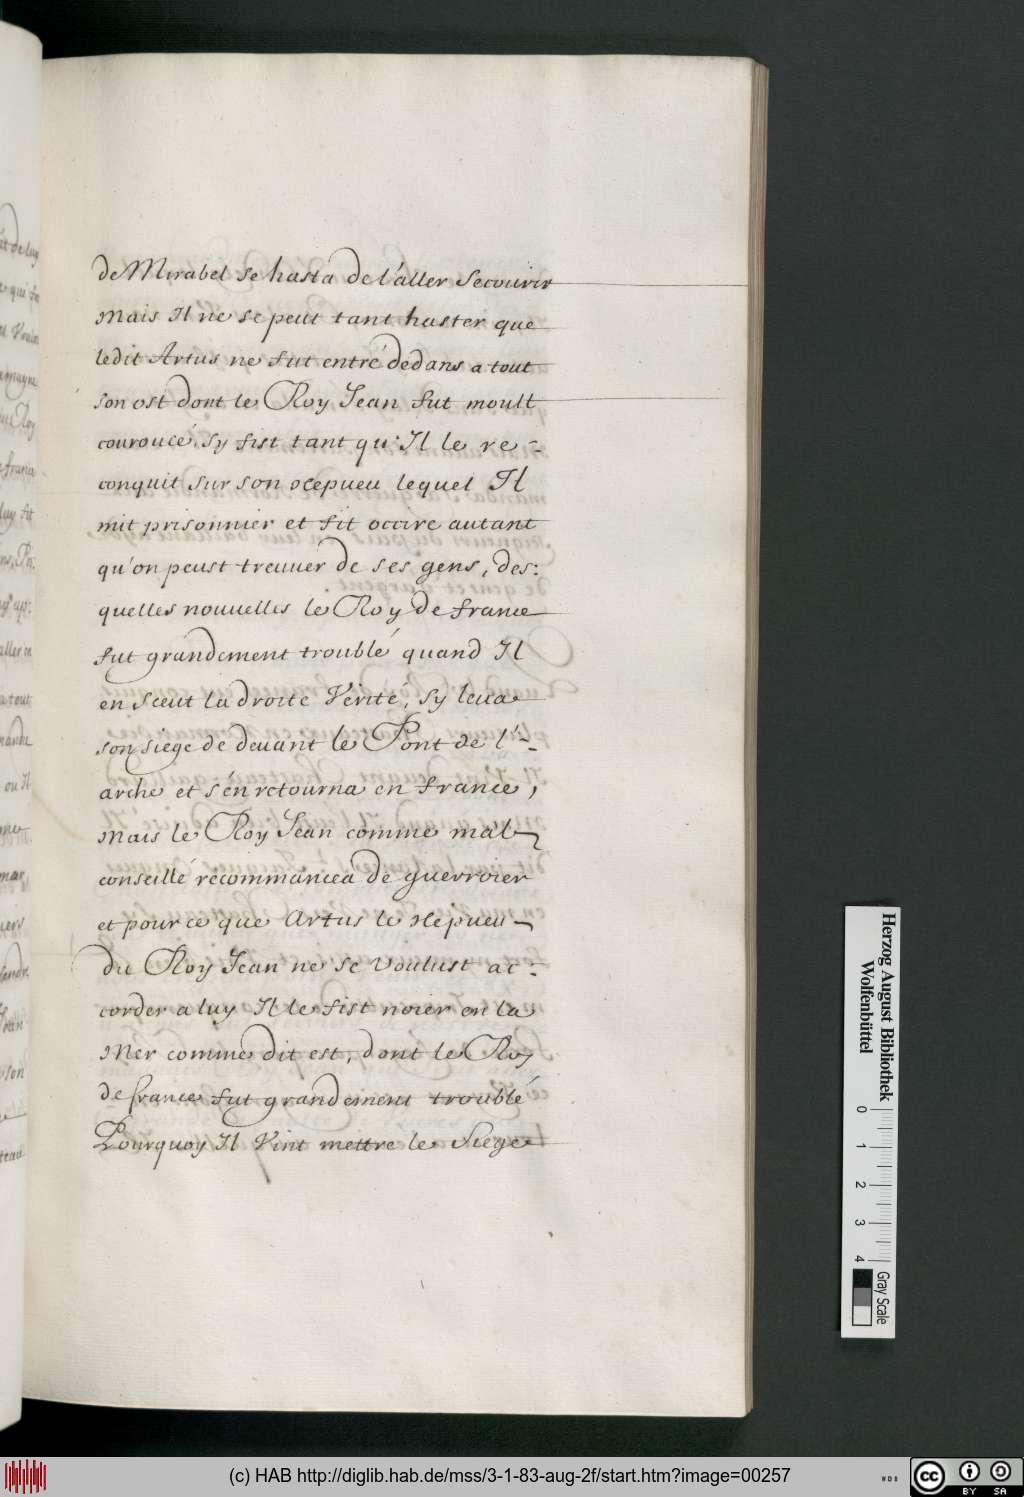 de Mirabel se hasta de l'aller Secourir
Mais Il ne se peut tant haster que
ledit Artus ne fut entré dedans a tout
son ost dont le Roy Jean fut moult
couroucé, sy fist tant qu'Il le re-
conquit sur son nepueu lequel Il
mit prisonnier et fit occire autant
qu'on peust treuuer de ses gens, des:
quelles nouuelles le Roy de france
fut grandement troublé quand Il
en sceut la droite Verité, sy leua
son siege de deuant le Pont de l'-
arche et s'en retourna en france,
Mais le Roy Jean comme mal
conseillé recommancea de guerroier
et pource que Artus le Nepueu
du Roy Jean ne se voulust ac:
corder a luy Il le fist noier en la
Mer comme dit est, dont le Roy
de france fut grandement troublé
Pourquoy Il Vint mettre le Siege
Herzog August Bibliothek
Wolfenbüttel
0 1 2 3 4
Gray Scale
(c) HAB http://diglib.hab.de/mss/3-1-83-aug-2f/start.htm?image=00257
WDB
cc
BY SA